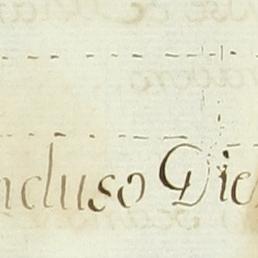 ncluso Die